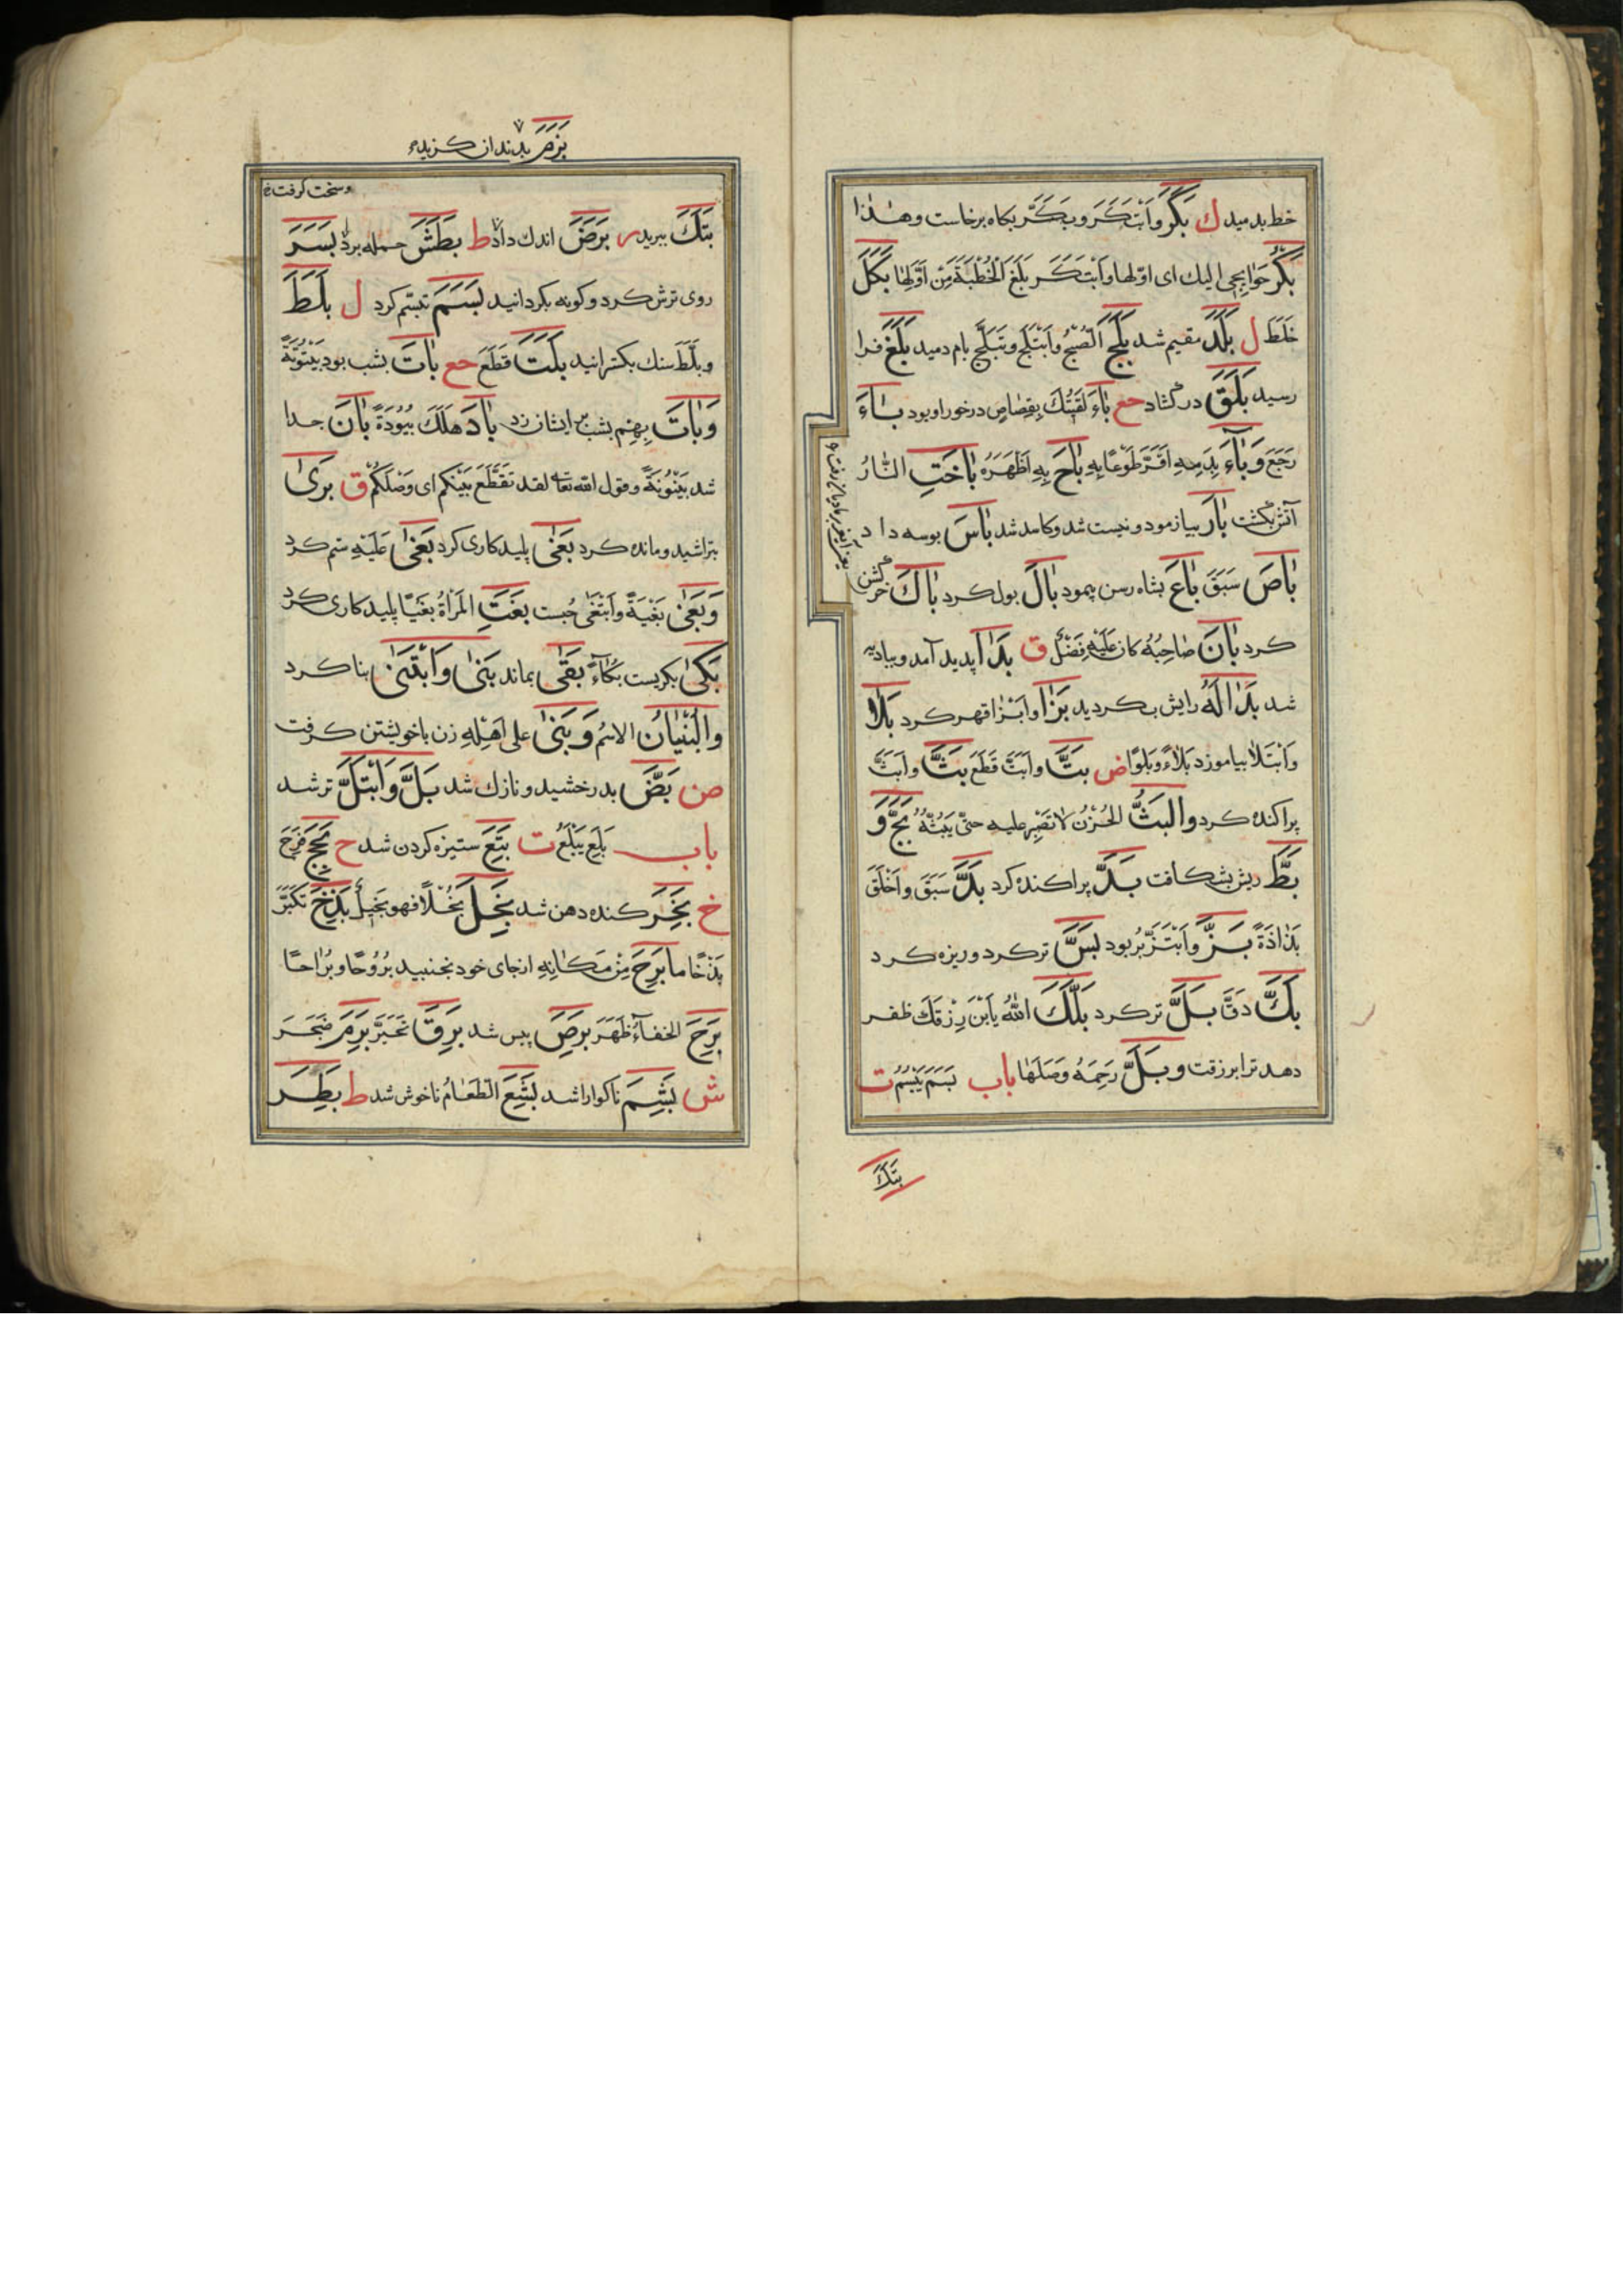 خط بدمید ك بَكَرَ وَابْتَكَرَ وبَكَّرَ بكاه برخاست وهٰذا
بَكِّرْ حَوَايِجِي اليك اى اوّلها وابْتَكَرَ بَلَغَ الْخُطْبَةَ مِنْ اَوَّلِهَا بَكَلَ
خَلَطَ ل بَلَدَ مقیم شد بَلَجَ الصُّبْحُ وابْتَلَجَ وتَبَلَّجَ بام دمید بَلَغَ فرا
رسید بَلَقَ در گشاد حع بَاءَ لقيتك بقصاص درخور او بود بَاءَ
رَجَعَ وَبَاءَ بِدَمِهِ اَقَرَّ طَوْعًا بِهِ بَاحَ بِهِ اَظْهَرَهُ بَاخَتِ النَّارُ
آتش بكشت بَارَ بیازمود و نیست شد و كاسد شد بَاسَ بوسه داد
بَاصَ سَبَقَ بَاعَ بشاه رسن پیمود بَالَ بول كرد بَاكَ خر گشن
كرد بَانَ صَاحِبُهُ كان عليه فَضْلٌ ق بَدَا پدید آمد و ببادیه
شد بَدَا لَهُ رایش بكردید بَزَا وابْزَا قهر كرد بَلَا
وابْتَلَا بیاموزد بَلَاءً وبَلْوًا ض بَتَّ وابَتَّ قَطَعَ بَثَّ وابَثَّ
پراكنده كرد والبَثُّ الحُزْنُ لا تَصْبِر عليه حتّى يَبُثَّهُ بَجَّ وَ
بَطَّ ریش بشكافت بَدَّ پراكنده كرد بَذَّ سَبَقَ واخْلَقَ
بَذَاذَةً بَزَّ وابْتَزَّ بربود بَسَّ تر كرد و ریزه كرد
بَكَّ دَقَّ بَلَّ تر كرد بَلَّكَ اللّٰهُ بابن رزقك ظفر
دهد ترا برزقت وبَلَّ رَحِمَهُ وَصَلَهَا باب بَسَمَ يَبْسِمُ ت
بَتَكَ
بَزَمَ بدندان كزیده
و سخت كرفت
بَتَكَ ببرید ر بَرَضَ اندك داد ط بَطَشَ حمله برد بَسَرَ
روی ترش كرد و كونه بكردانید بَسَمَ تبسّم كرد ل بَلَطَ
وبَلَّطَ سنك بكسترانید بَلَتَ قَطَعَ حع بَاتَ بشب بود بَيْتُوتَةً
وَبَاتَ بِهِم بشب بر ایشان زد بَادَ هَلَكَ بُيُودَةً بَانَ جدا
شد بَيْنُونَةً وقول الله تعا لقد تَقَطَّعَ بَيْنَكم اى وَصْلُكُمْ ق بَرَىٰ
بتراشید و مانده كرد بَغَىٰ پلیدكاری كرد بَغَىٰ عَلَيْهِ ستم كرد
وَبَغَىٰ بُغْيَةً وابْتَغَىٰ جُست بَغَتِ المَرْاَةُ بَغِيًّا پلیدكاری كرد
بَكَىٰ بكریست بُكَاءً بَقَىٰ بماند بَنَىٰ وَابْتَنَىٰ بنا كرد
والبُنْيَانُ الاسْمُ وَبَنَىٰ على اَهْلِهِ زن باخویشتن كرفت
ص بَضَّ بدرخشید و نازك شد بَلَّ وَابْتَلَّ تر شد
باب بَلِعَ يَبْلَعُ ت بَتِعَ ستیزه كردن شد ح بَجِحَ فَرِحَ
خ بَخِرَ كنده دهن شد بَخِلَ بُخْلًا فهو بخيل بَذِخَ تَكَبَّرَ
بَذَخًا ما بَرِحَ مِنْ مَكَانِهِ از جای خود نجنبید بُرُوحًا وبَرَاحًا
بَرِحَ الخفاءُ ظَهَرَ بَرِصَ پیس شد بَرِقَ تَحَيَّرَ بَرِمَ ضَجِرَ
ش بَشِمَ ناكوارا شد بَشِعَ الطَّعَامُ ناخوش شد ط بَطِرَ